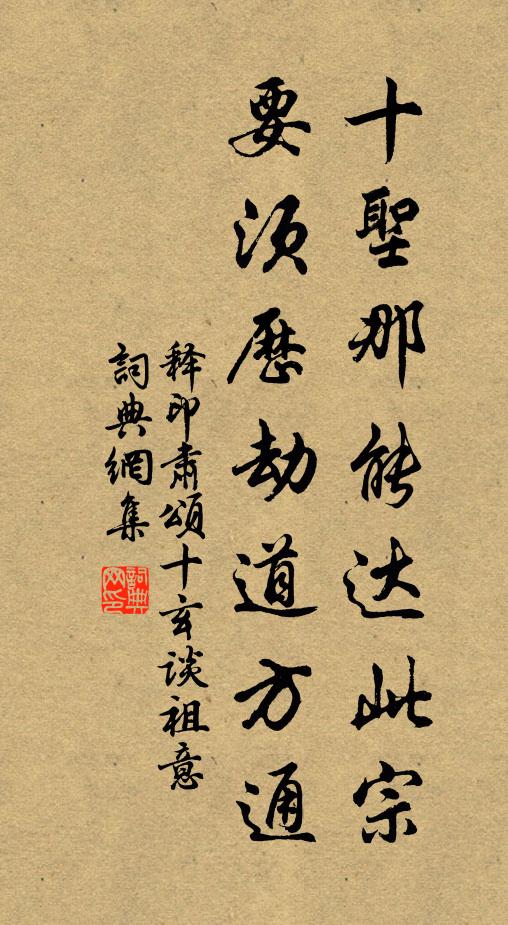 十聖那能达此宗
要须歷劫道方通
释印肃頌十玄談祖意
詞典網集
詞典网印